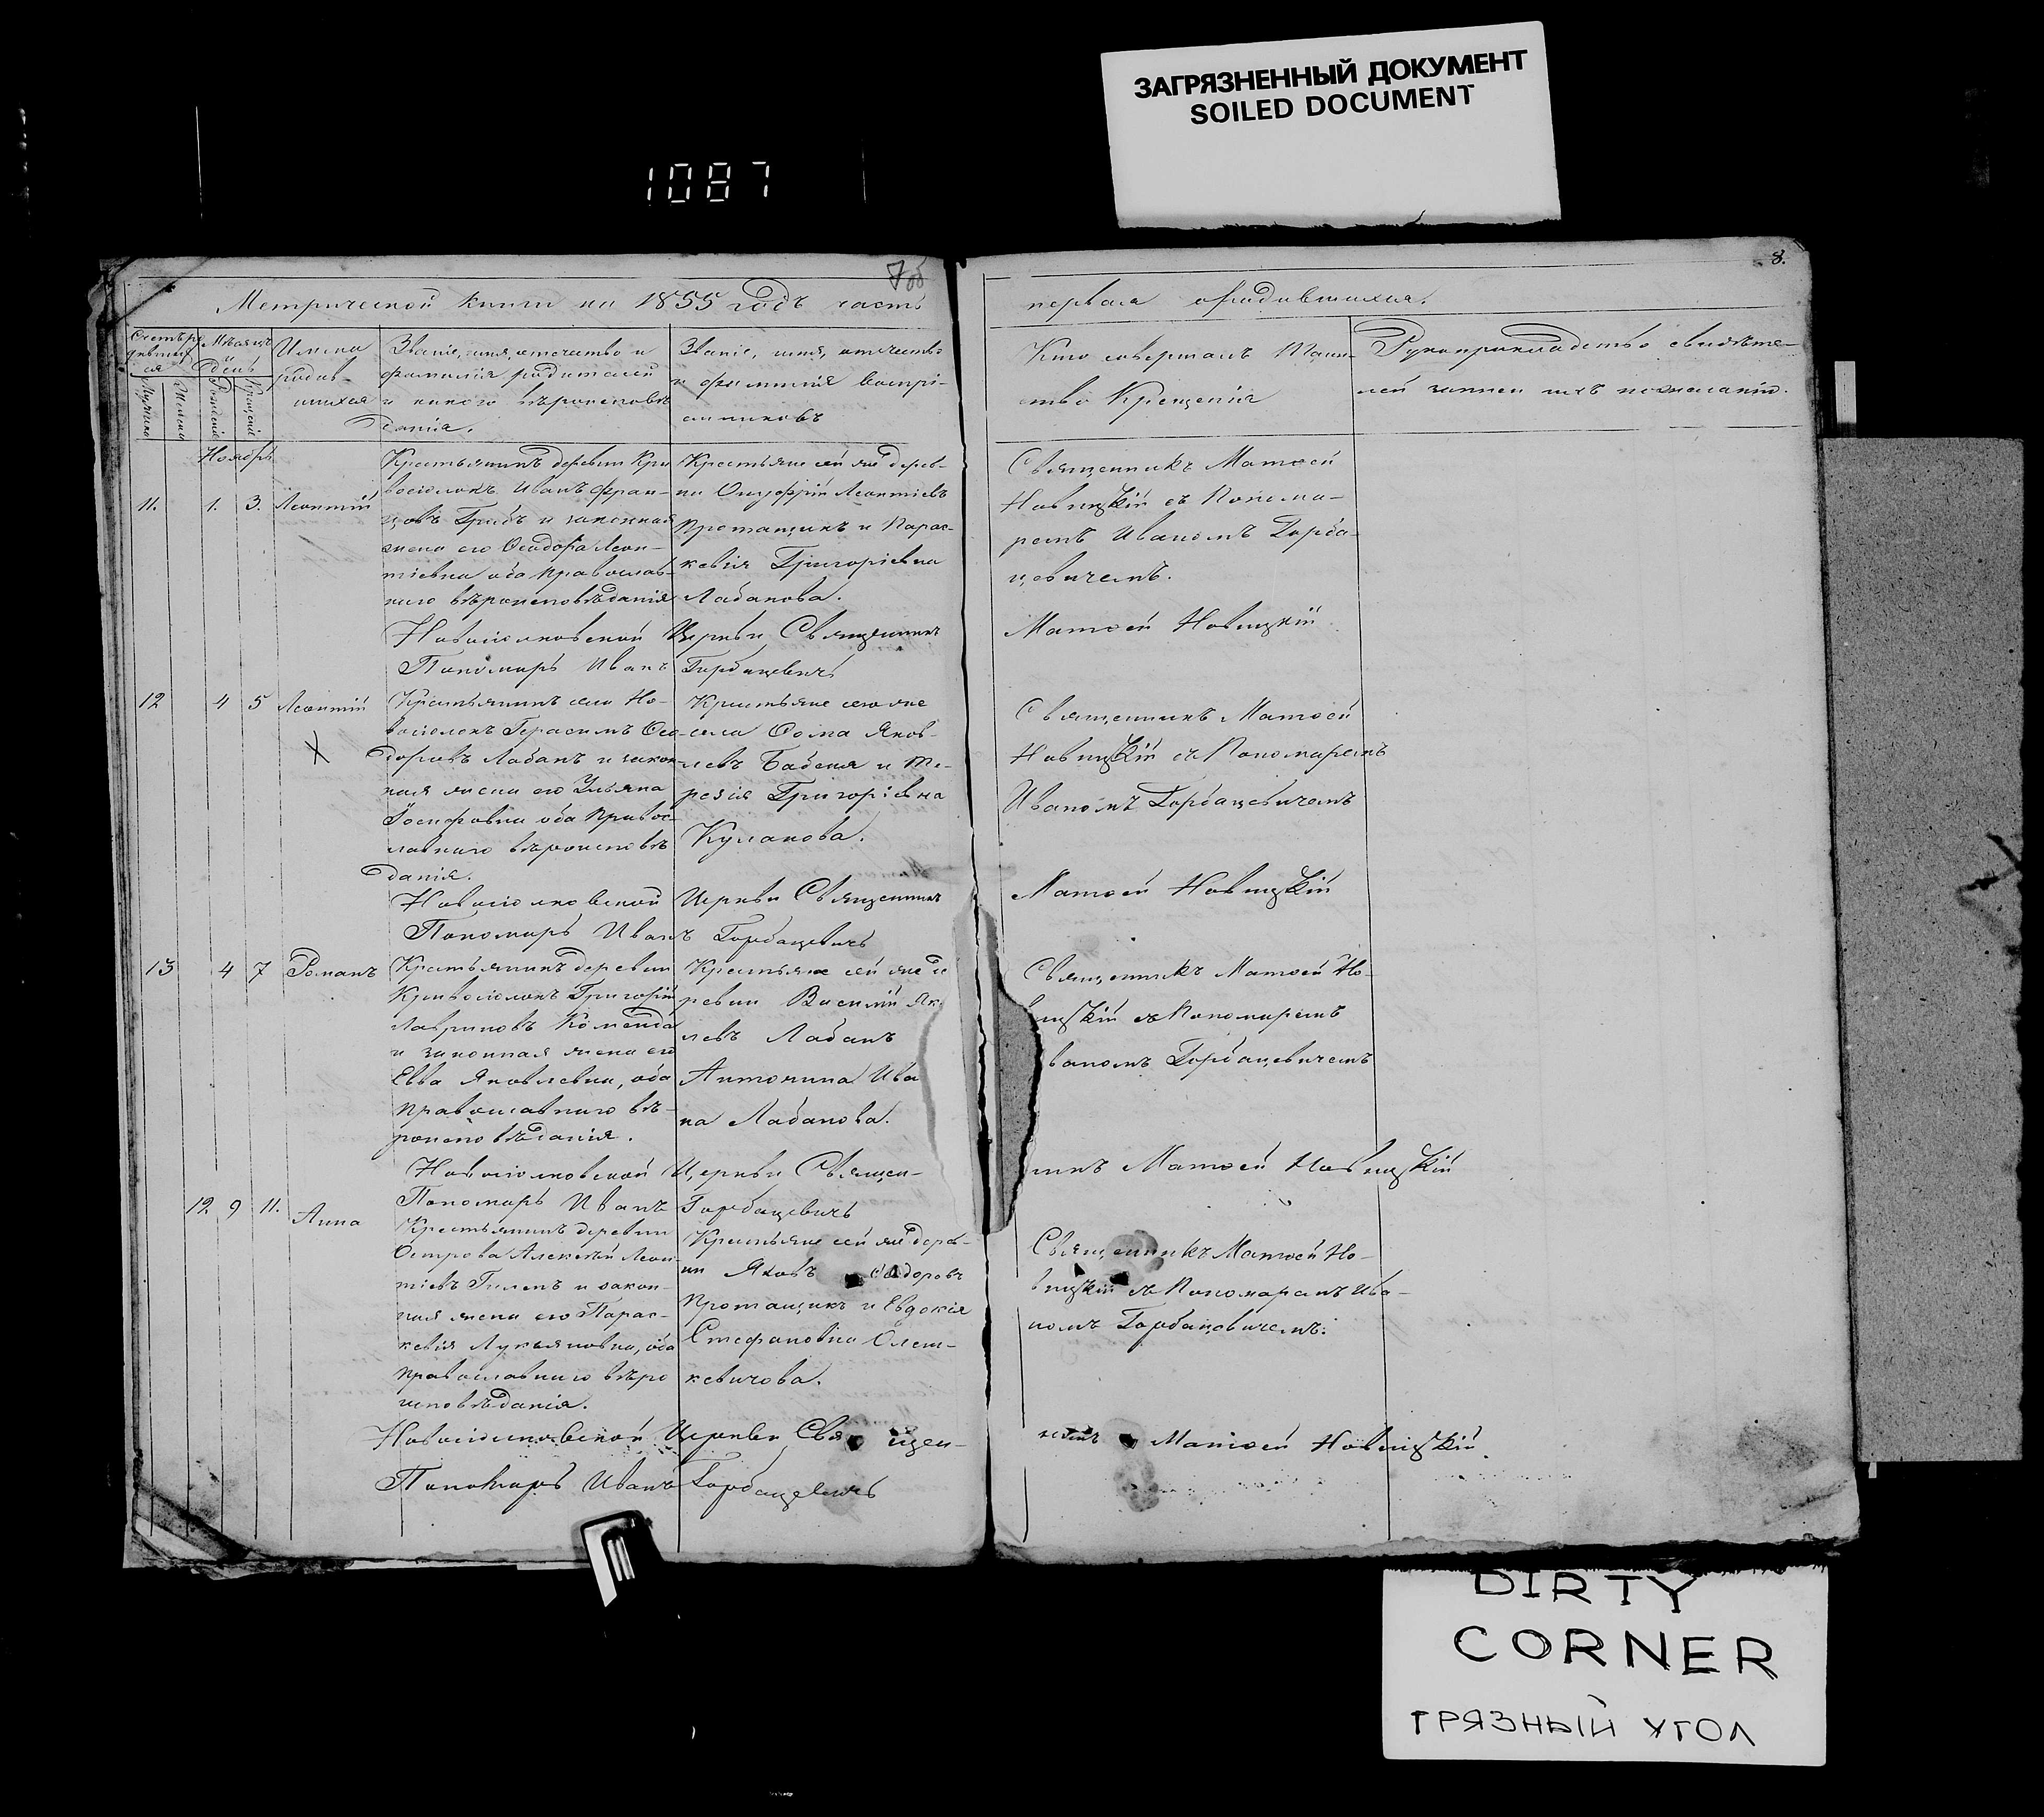 ЗАГРЯЗНЕННЫЙ ДОКУМЕНТ
SOILED DOCUMENT
1087
7об
8.
Метрической книги на 1855 годъ часть
первая о родившихся.
Мѣсяцъ
и
день
Мужеска
Женска
Рожденія
Крещенія
Имена
родив-
шихся
Званіе, имя, отчество и
фамилія родителей
и какого вѣроисповѣ
данія.
Званіе, имя, отчество
и фамилія воспрі-
емниковъ
Кто совершалъ Таин-
ство Крещенія
Рукоприкладство свидѣте-
лей записи по желанію.
Ноябрь
11.
1.
3.
Леонтій
Крестьянинъ деревни Кри
восіолокъ Иванъ Фран-
цовъ Грибъ и законная
жена его Ѳеодора Леон-
тіевна оба православ-
наго вѣроисповѣданія
Крестьяне сей же дерев-
ни Онуфрій Леонтіевъ
Протащикъ и Парас-
кевія Григоріевна
Лабанова.
Священникъ Матѳей
Новицкій съ Понома-
ремъ Иваномъ Горба-
цевичемъ.
Новосіолковской Церкви Священникъ
Матѳей Новицкій
Пономарь Иванъ Горбацевичъ
12
4
5
Леонтій
Крестьянинъ села Но-
восіолокъ Герасимъ Ѳео-
доровъ Лабанъ и закон-
ная жена его Ульяна
Іосифовна оба правос-
лавнаго вѣроисповѣ
данія.
Крестьяне того же
села Ѳома Яков-
левъ Бабеня и Те-
резія Григоріевна
Кулакова.
Священникъ Матѳей
Новицкій съ Пономаремъ
Иваномъ Горбацевичемъ
Новосіолковской Церкви Священникъ
Матѳей Новицкій
Пономарь Иванъ Горбацевичъ
13
4
7
Романъ
Крестьянинъ деревни
Кривосіолокъ Григорій
Лавриновъ Коменда
и законная жена его
Евва Яковлевна, оба
православнаго вѣ-
роисповѣданія.
Крестьяне сей же де
ревни Василій Як
левъ Лабанъ
Антонина Ива
на Лабанова.
Священникъ Матѳей Но-
вицкій съ Пономаремъ
ваномъ Горбацевичемъ
Новосіолковской Церкви Священ-
никъ Матѳей Новицкій
Пономарь Иванъ Горбацевичъ
12
9
11.
Анна
Крестьянинъ деревни
Острова Алексѣй Леон
тіевъ Гилеп и закон-
ная жена его Парас-
кевія Лукьяновна, оба
православнаго вѣро
исповѣданія.
Крестьяне сей же дерев-
ни Яковъ Ѳеодоровъ
Протащикъ и Евдокія
Стефановна Олеш-
кевичова.
Священникъ Матѳей Но-
вицкій съ Пономаремъ Ива-
номъ Горбацевичемъ.
Новосіолковской Церкви Священ-
никъ Матѳей Новицкій
Пономарь Иванъ Горбацевичъ
DIRTY
CORNER
ГРЯЗНЫЙ УГОЛ